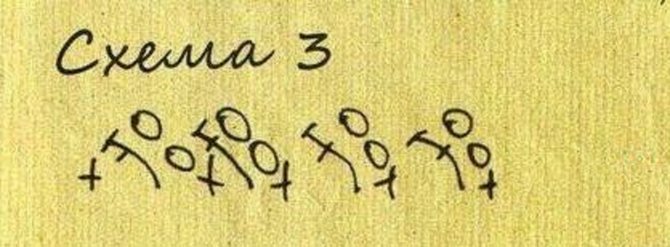 Схема 3